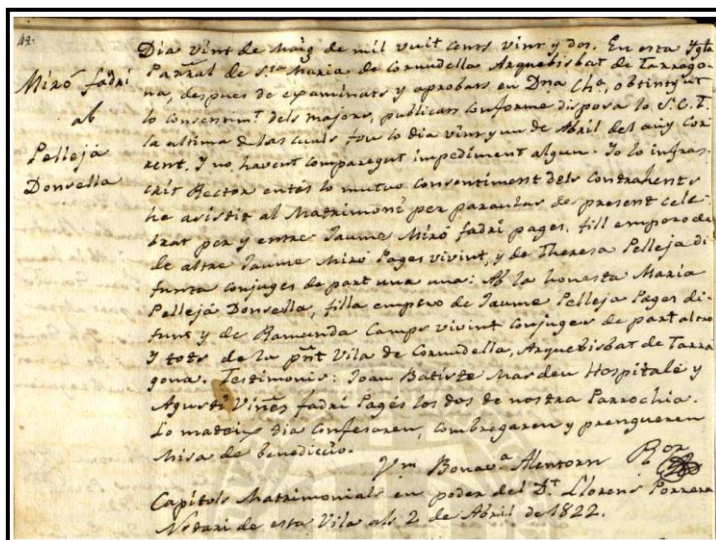 42.
Miró fadri
ab
Pellejá
Donsella
Dia vint de Maig de mil vuit cents vint y dos. En esta Ygla
Parral de Sta Maria de Cornudella Arquebisbat de Tarrago-
na, despues de examinats y aprobats en Dna Cha, obtingut
lo consentimt dels majors, publicats conforme disposa lo S.C.T.
la ultima de las cuals fou lo dia vint y un de Abril del any Cor-
rent, y no havent comparegut impediment algun. Jo lo infras-
crit Rector entés lo mutuo consentiment dels Contrahents
he asistit al Matrimoni per paraulas de present cele-
brat per y entre Jaume Miró fadri pages, fill emperó de
de altre Jaume Miró Pages vivint, y de Theresa Pellejá di-
funta conjuges de part una: Ab la honesta Maria
Pellejá Donsella, filla emperó de Jaume Pelleja Pages di-
funt y de Ramunda Camps vivint Conjuges de part altre
Y tots de la pnt Vila de Cornudella, Arquebisbat de Tarra
gona. Testimonis: Joan Batiste Mardeu Hospitalé y
Agusti Viñes fadri Pagés los dos de nostra Parrochia.
Lo mateix dia Confesaren, combregaren y prengueren
Misa de benedicció.
Bonava Alentorn Ror
Capitols Matrimonials en poder del Dt Llorens Porrera
Notari de esta Vila als 2 de Abril de 1822.